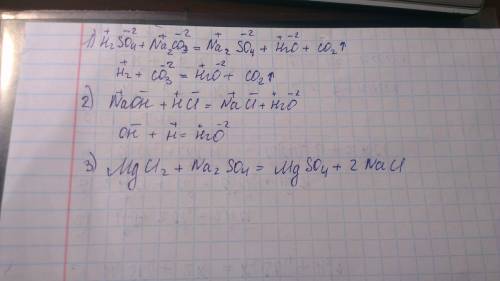 1) H₂SO₄ + Na₂CO₃ = Na₂SO₄ + H₂O + CO₂↑
H₂ + CO₃ = H₂O + CO₂↑
2) NaOH + HCl = NaCl + H₂O
OH + H = H₂O
3) MgCl₂ + Na₂SO₄ = MgSO₄ + 2 NaCl